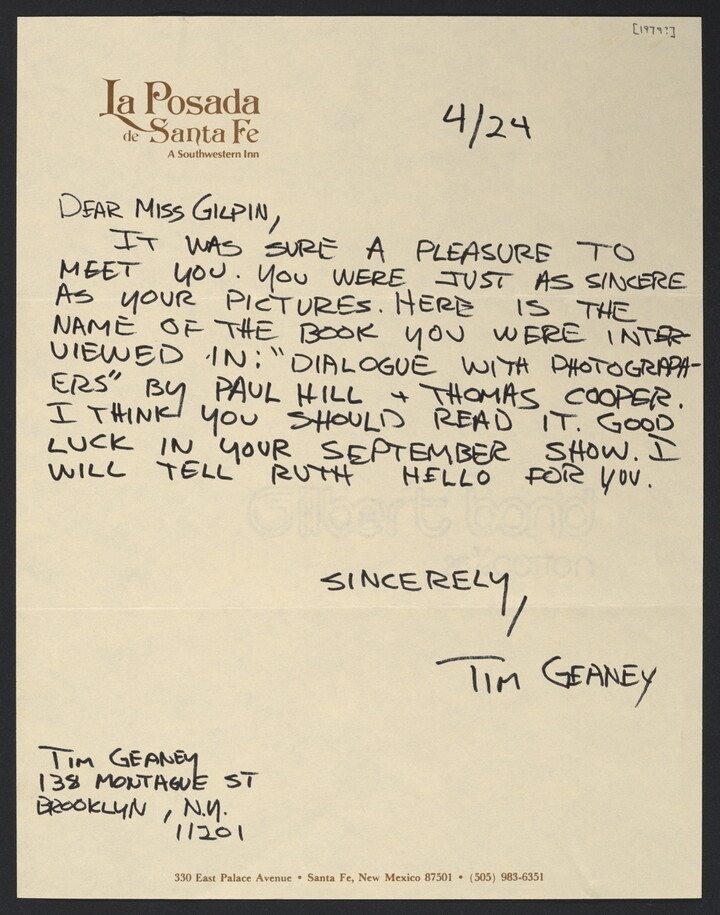 [1979?]
La Posada
de Santa Fe
A Southwestern Inn
4/24
DEAR MISS GILPIN,
IT WAS SURE A PLEASURE TO
MEET YOU. YOU WERE JUST AS SINCERE
AS YOUR PICTURES. HERE IS THE
NAME OF THE BOOK YOU WERE INTER-
VIEWED IN: "DIALOGUE WITH PHOTOGRAPH-
ERS" BY PAUL HILL + THOMAS COOPER.
I THINK YOU SHOULD READ IT. GOOD
LUCK IN YOUR SEPTEMBER SHOW. I
WILL TELL RUTH HELLO FOR YOU.
Gilbert bond
SINCERELY,
TIM GEANEY
TIM GEANEY
138 MONTAGUE ST
BROOKLYN, N.Y.
11201
330 East Palace Avenue • Santa Fe, New Mexico 87501 • (505) 983-6351